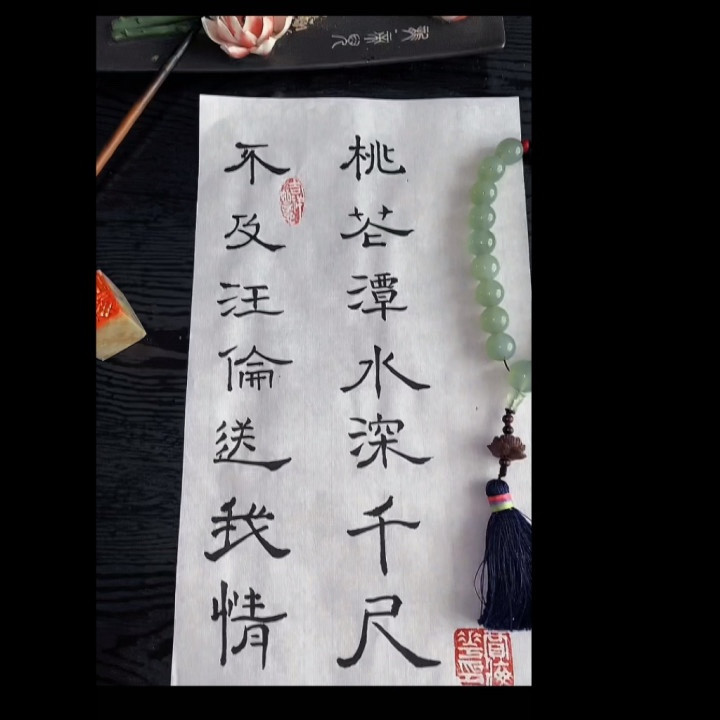 桃花潭水深千尺
不及汪倫送我情